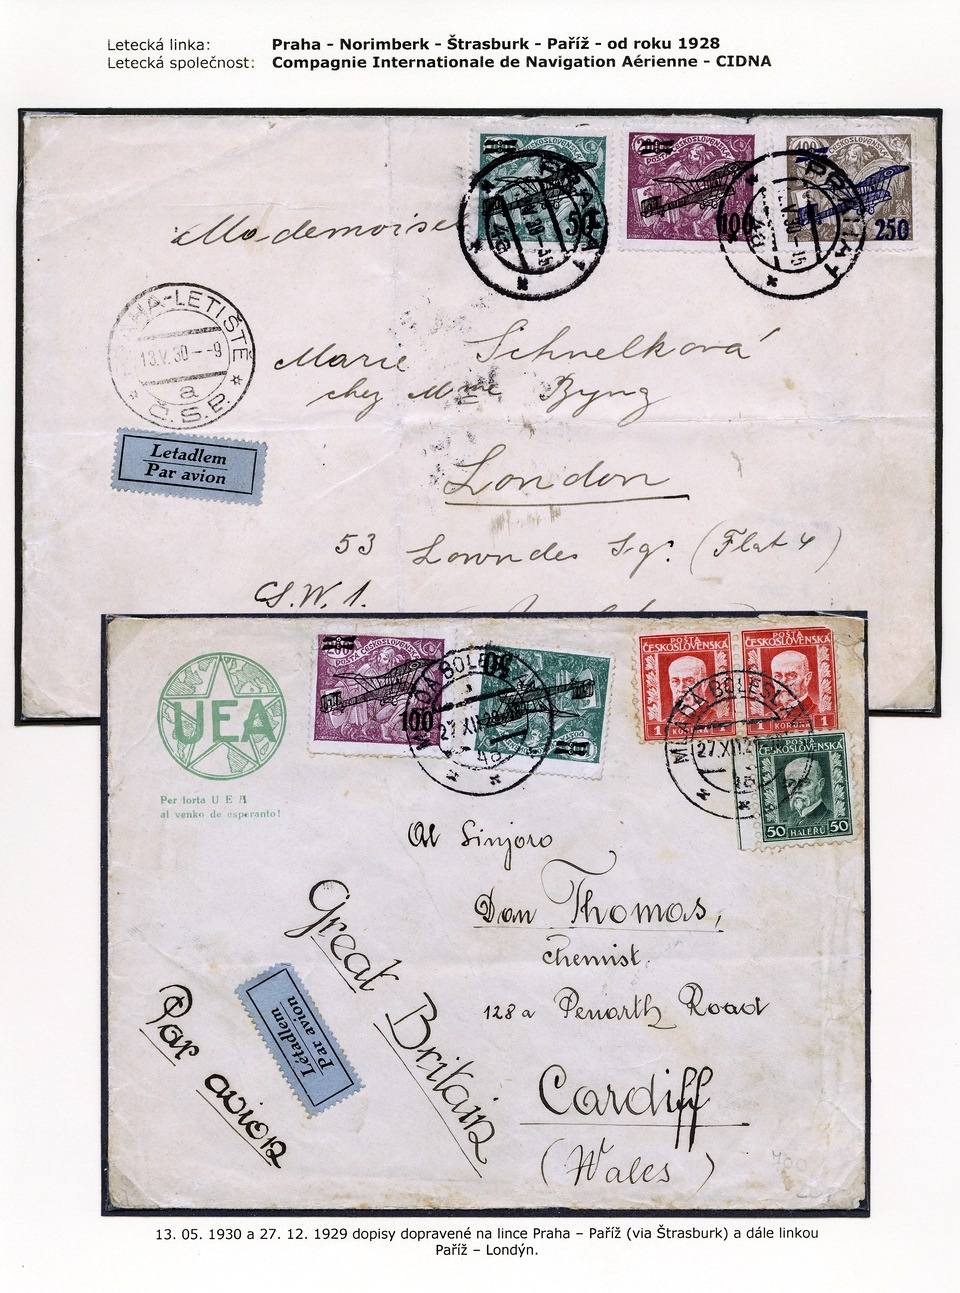 Letecká linka: Praha - Norimberk - Štrasburk - Paříž - od roku 1928
Letecká společnost: Compagnie Internationale de Navigation Aérienne - CIDNA
50
100
250
PRAHA 1
PRAHA 1
Mademoise
PRAHA-LETIŠTĚ
13.V.30 - -9
a
Č.S.P.
Marie Schnelková
chez Mme Byng
Letadlem
Par avion
London
53 Lowndes Sq. (Flat 4)
S.W.1.
POSTA ČESKOSLOVENSKÁ
100
MLADÁ BOLESLAV
27.XII.29
4a
POŠTA
ČESKOSLOVENSKÁ
1 KORUNA 1
POŠTA
ČESKOSLOVENSKÁ
1 KORUNA 1
MLADÁ BOLESLAV
27.XII.2
ČESKOSLOVENSKÁ
50 HALÉŘŮ 50
UEA
Per forta U E A
al venko de esperanto!
Al Sinjoro
Dan Thomas,
chemist.
128a Penarth Road
Cardiff
(Wales)
Great Britain
Letadlem
Par avion
Par avion
700
13. 05. 1930 a 27. 12. 1929 dopisy dopravené na lince Praha – Paříž (via Štrasburk) a dále linkou
Paříž – Londýn.